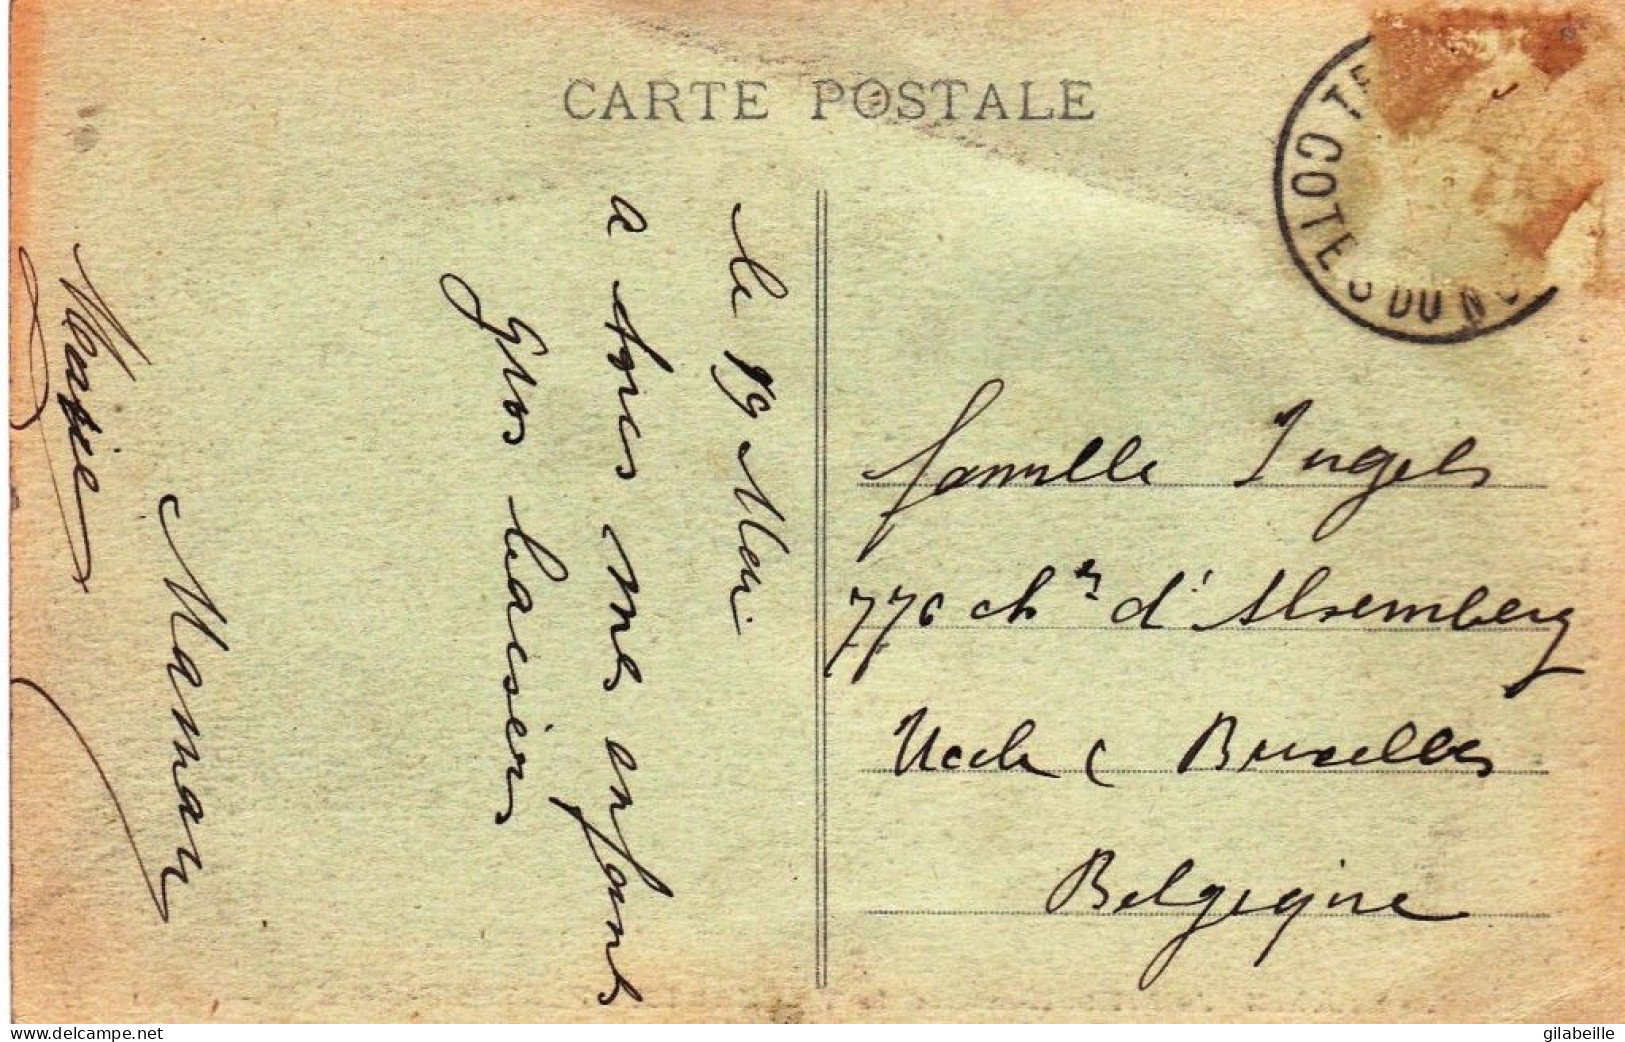 CARTE POSTALE
COTES DU N
le 19 Mai
a tous mes enfants
gros baisers
Maman
famille Ingels
776 ch d'Alsemberg
Uccle Bruxelles
Belgique
www.delcampe.net
gilabeille